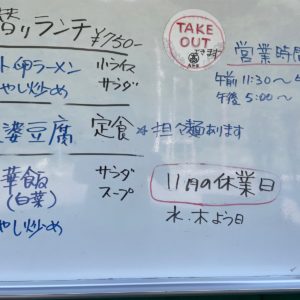 替りランチ ¥750-
ト卵ラーメン 小ライス
やし炒め サラダ
婆豆腐 定食 ※担々麺あります
華飯 サラダ
(白菜) スープ
やし炒め
TAKE
OUT
できます
営業時間
午前 11:30~
午後 5:00~
11月の休業日
水・木よう日